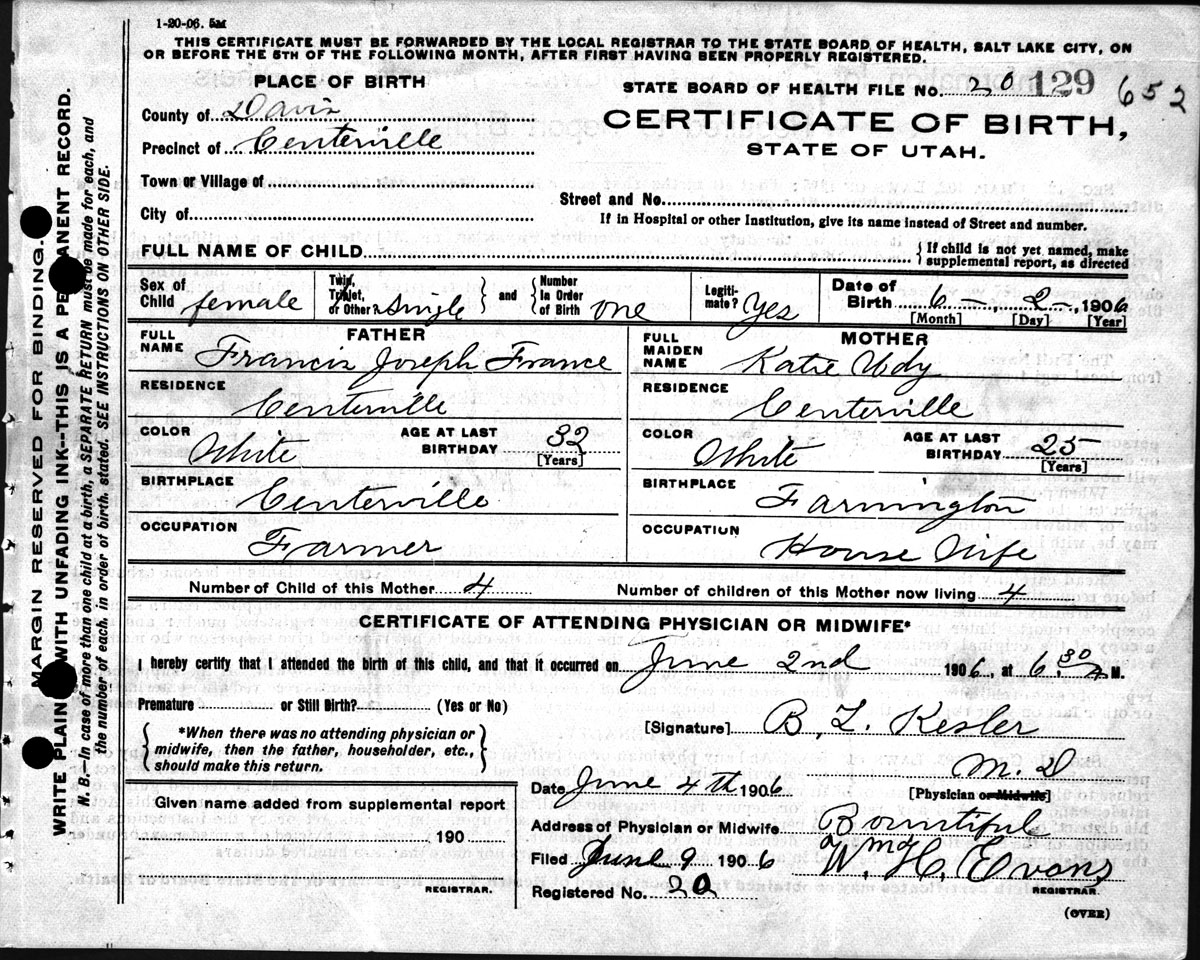 1-20-06. 5M
THIS CERTIFICATE MUST BE FORWARDED BY THE LOCAL REGISTRAR TO THE STATE BOARD OF HEALTH, SALT LAKE CITY, ON
OR BEFORE THE 5TH OF THE FOLLOWING MONTH, AFTER FIRST HAVING BEEN PROPERLY REGISTERED.
PLACE OF BIRTH
County of Davis
Precinct of Centerville
Town or Village of
City of
STATE BOARD OF HEALTH FILE NO. 20 129 652
CERTIFICATE OF BIRTH,
STATE OF UTAH.
Street and No.
If in Hospital or other Institution, give its name instead of Street and number.
FULL NAME OF CHILD
{If child is not yet named, make
supplemental report, as directed
Sex of Child female
Twin, Triplet, or Other? Single } and { Number In Order of Birth one
Legitimate? Yes
Date of Birth 6 - 2 - 1906
[Month] [Day] [Year]
FATHER
FULL NAME Francis Joseph France
RESIDENCE Centerville
COLOR White AGE AT LAST BIRTHDAY 32 [Years]
BIRTHPLACE Centerville
OCCUPATION Farmer
MOTHER
FULL MAIDEN NAME Katie Udy
RESIDENCE Centerville
COLOR White AGE AT LAST BIRTHDAY 25 [Years]
BIRTHPLACE Farmington
OCCUPATION House Wife
Number of Child of this Mother 4 Number of children of this Mother now living 4
CERTIFICATE OF ATTENDING PHYSICIAN OR MIDWIFE*
I hereby certify that I attended the birth of this child, and that it occurred on June 2nd 1906, at 6.30 A M.
Premature or Still Birth? (Yes or No)
{ *When there was no attending physician or
midwife, then the father, householder, etc.,
should make this return. }
[Signature] B. L. Kesler
M. D
[Physician or Midwife]
Given name added from supplemental report
190
REGISTRAR.
Date June 4th 1906
Address of Physician or Midwife Bountiful
Filed June 9 1906 Wm H. Evans
REGISTRAR.
Registered No. 20
(OVER)
MARGIN RESERVED FOR BINDING.
WRITE PLAINLY WITH UNFADING INK--THIS IS A PERMANENT RECORD.
N.B.—In case of more than one child at a birth, a SEPARATE RETURN must be made for each, and
the number of each, in order of birth, stated. SEE INSTRUCTIONS ON OTHER SIDE.